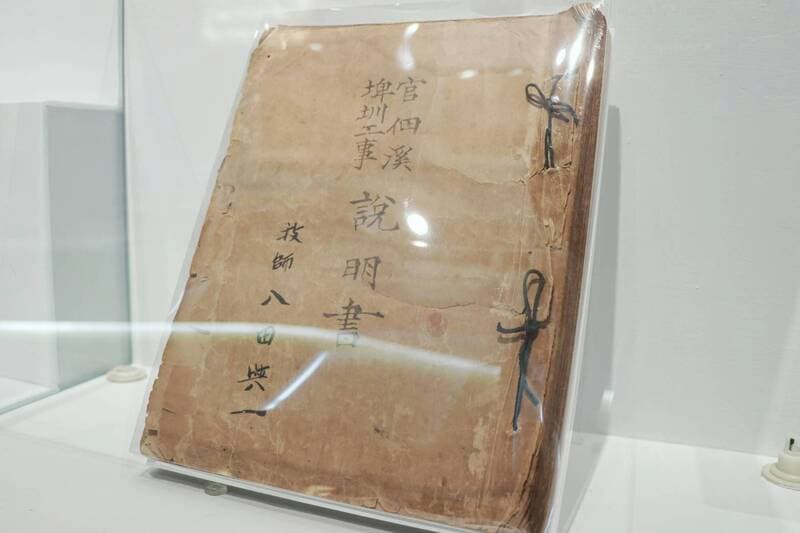 官佃溪
埤圳工事
說明書
技師
八田與一